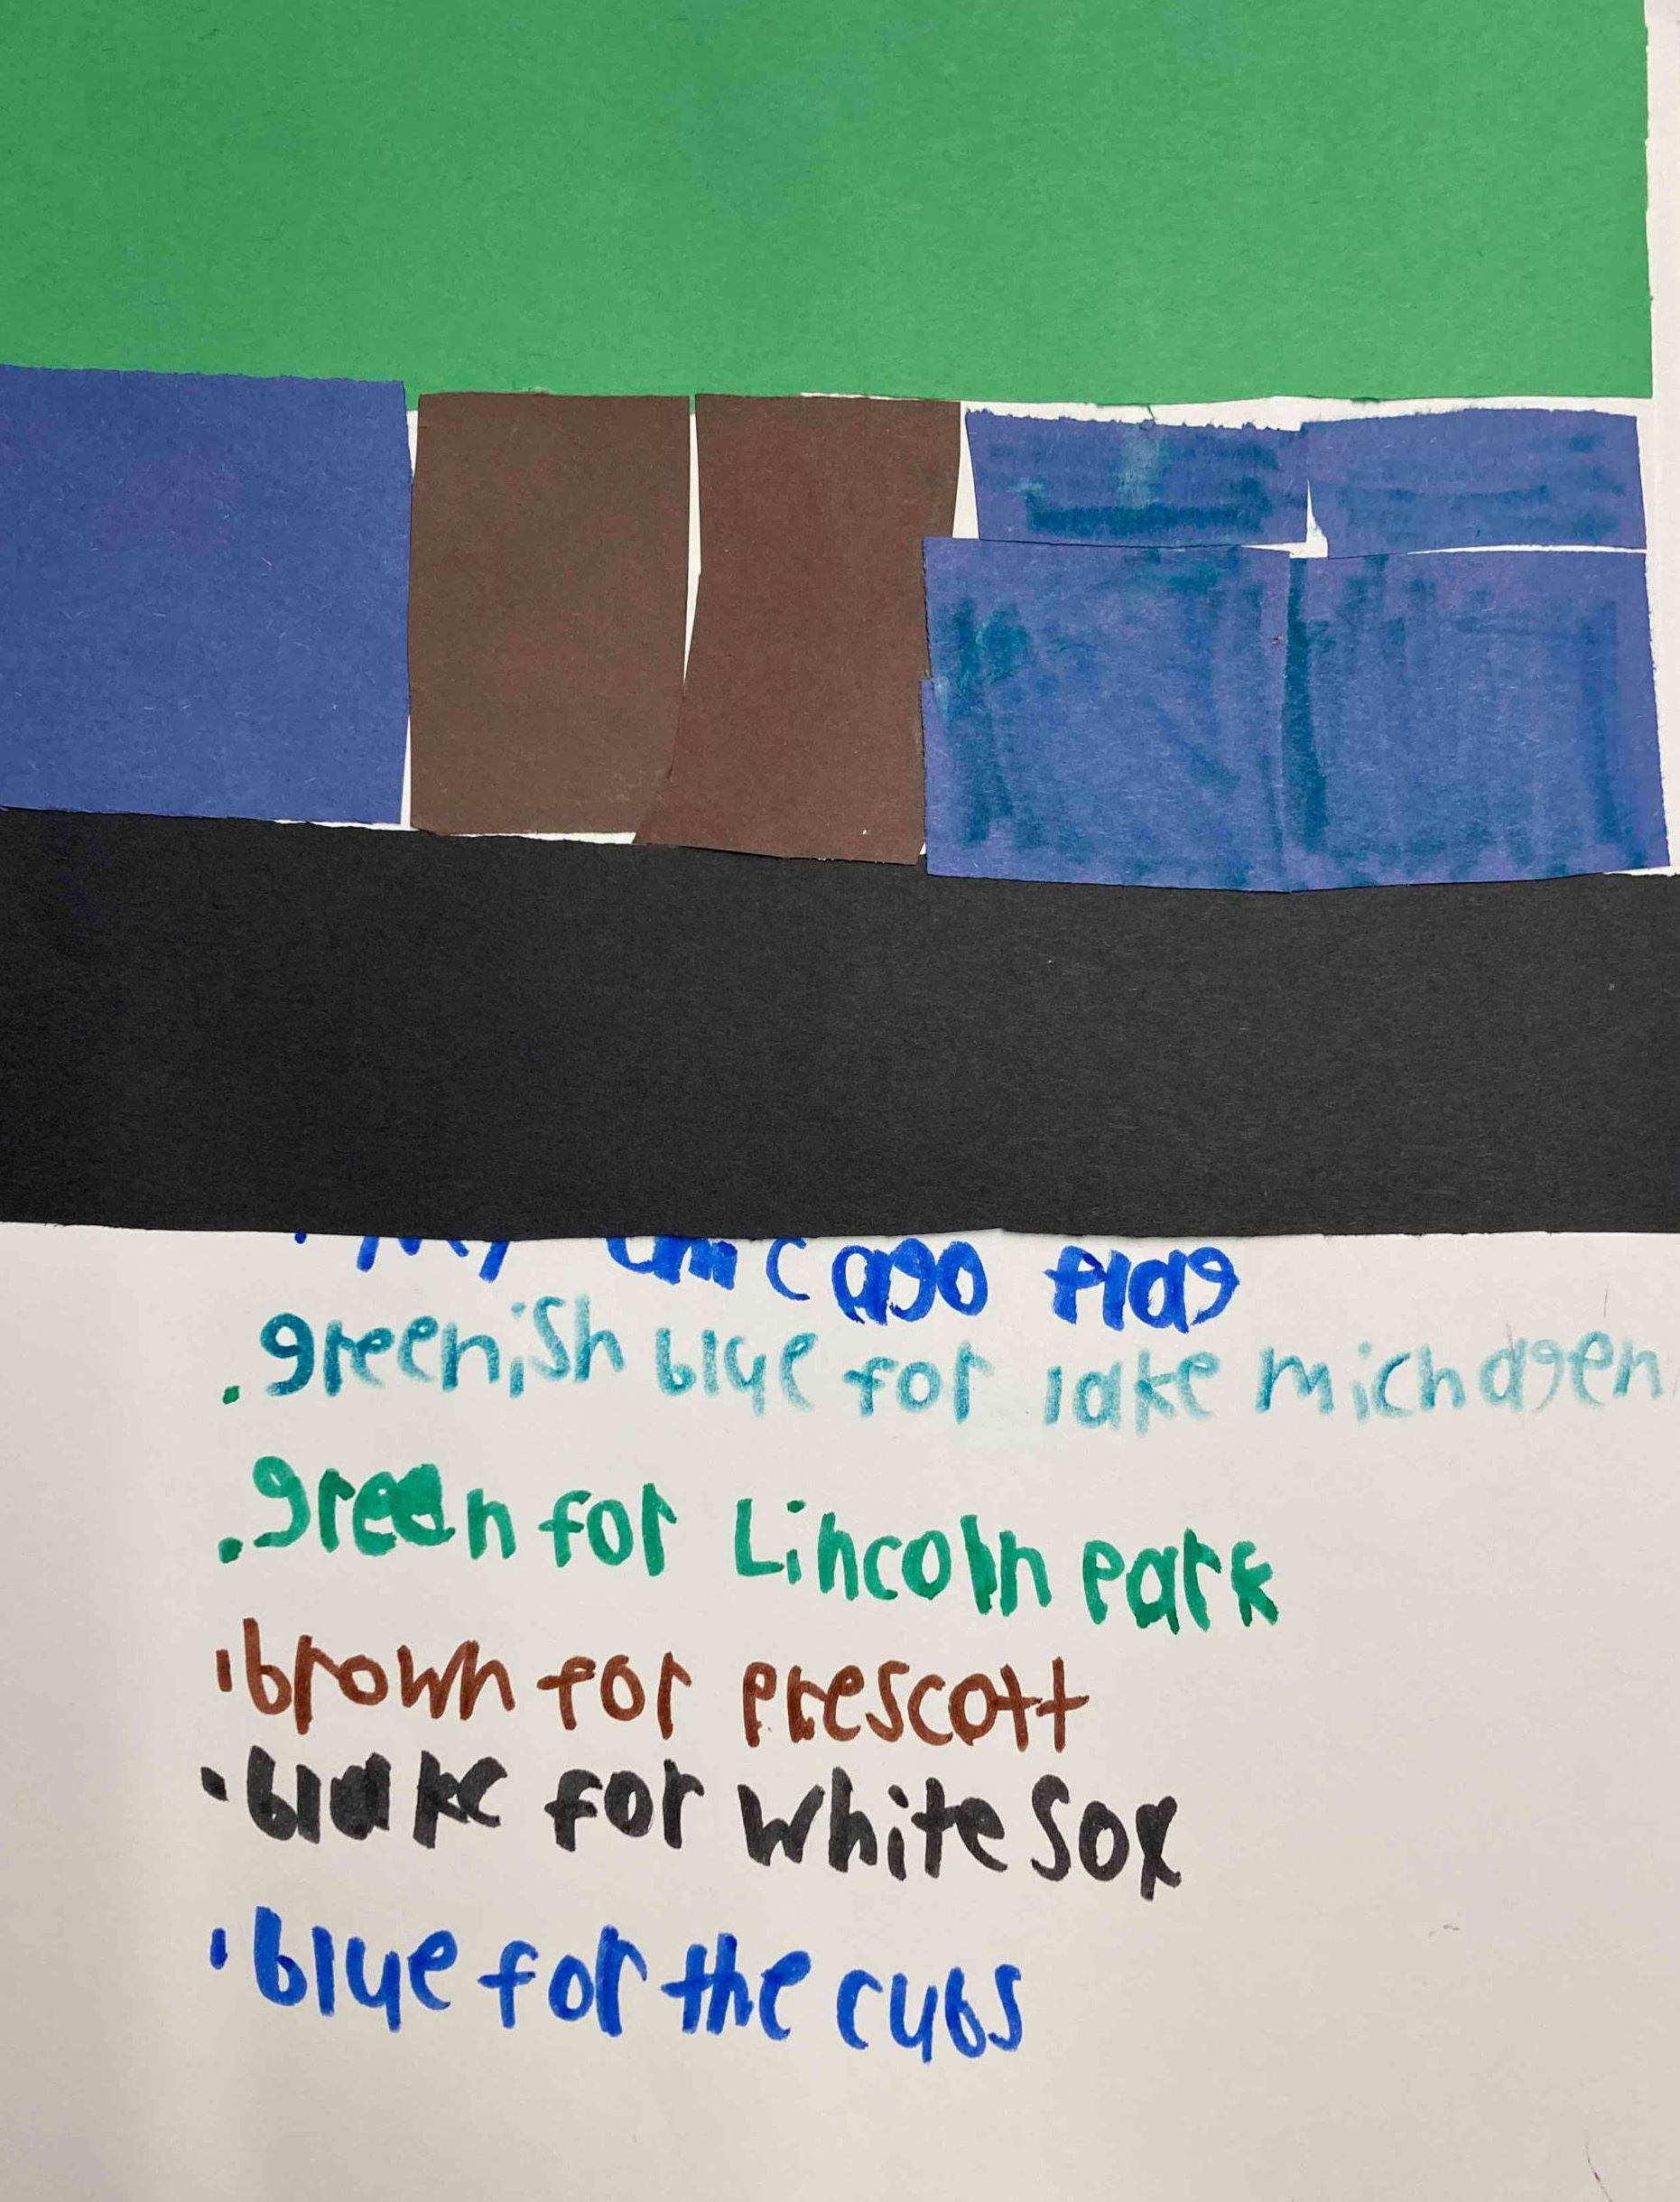 my chicago flag
. greenish blue for lake michagen
. green for Lincoln Park
. brown for prescott
. blake for white Sox
. blue for the cubs